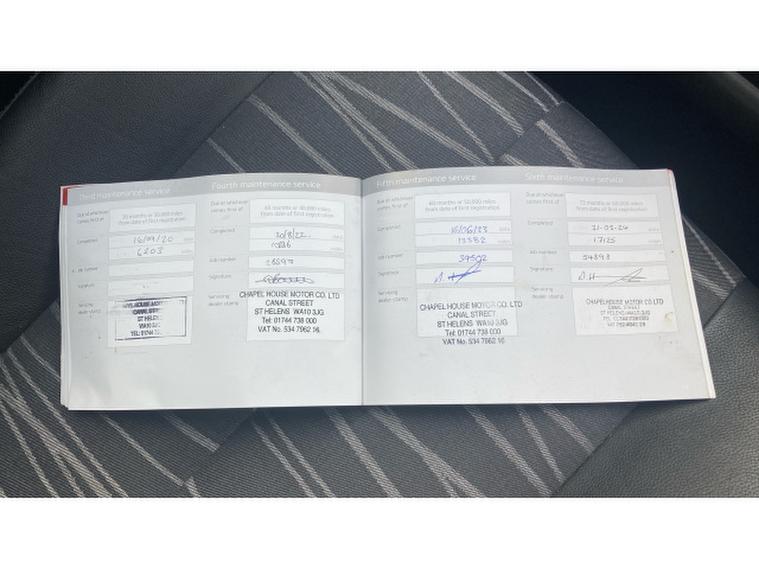 Third maintenance service
Due at whichever comes first of
30 months or 30,000 miles
from date of first registration
Completed
16/09/20 date
6203 miles
Job number
Signature
Servicing dealer stamp
CHAPEL HOUSE MOTOR
CANAL STREET
ST HELENS
WA10 3JG
TEL: 01744
Fourth maintenance service
Due at whichever comes first of
from date of first registration
Completed
30/8/22 date
miles
Job number
Signature
Servicing dealer stamp
CHAPEL HOUSE MOTOR CO. LTD
CANAL STREET
ST HELENS WA10 3JG
Tel: 01744 738 000
VAT No. 534 7962 16
Fifth maintenance service
Due at whichever comes first of
from date of first registration
Completed
16/06/23 date
13382 miles
Job number
39502
Signature
Servicing dealer stamp
CHAPEL HOUSE MOTOR CO. LTD
CANAL STREET
ST HELENS WA10 3JG
Tel: 01744 738 000
VAT No. 534 7962 16
Sixth maintenance service
Due at whichever comes first of
from date of first registration
Completed
21-05-24 date
17125 miles
Job number
54893
Signature
Servicing dealer stamp
CHAPEL HOUSE MOTOR CO. LTD
CANAL STREET
ST HELENS WA10 3JG
TEL: 01744 738000